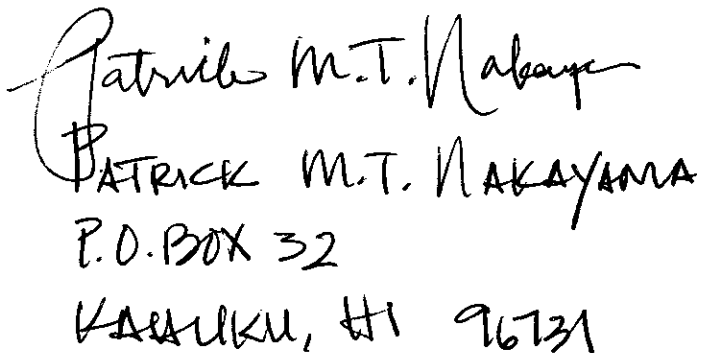 Patrick M.T. Nakayama
PATRICK M.T. NAKAYAMA
P.O. BOX 32
KAHUKU, HI 96731